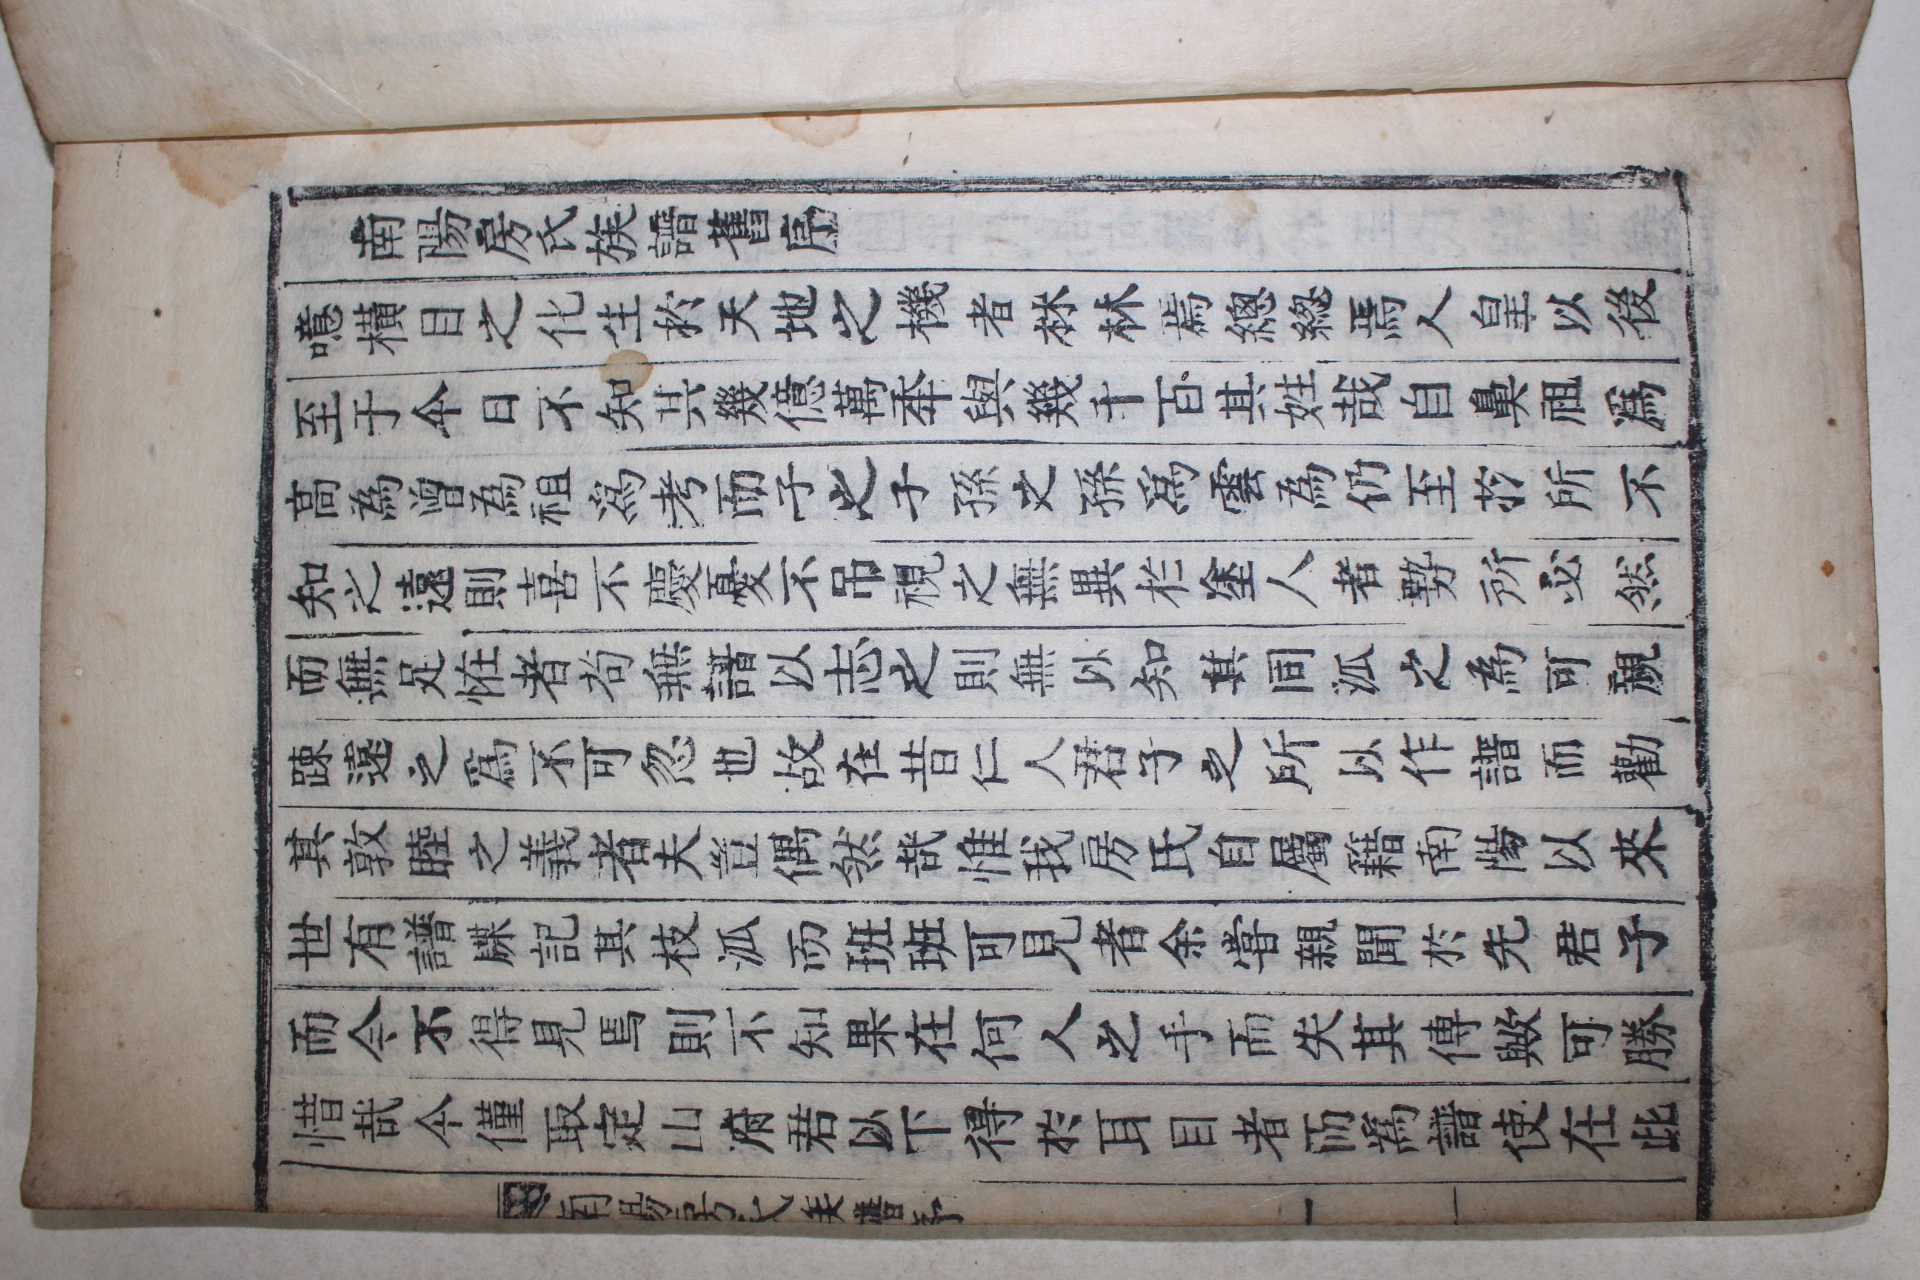 南陽房氏族譜舊序
噫橫目之化生於天地之機者林林焉總總焉人皇以後
至于今日不知其幾億萬年與幾千百其姓哉自鼻祖爲
高為曾為祖爲考而子之子孫之孫爲雲為仍至於所不
知之遠則喜不慶憂不吊視之無異於塗人者勢所必然
而無足恠者苟無譜以志之則無以知其同派之為可親
踈遠之爲不可忽也故在昔仁人君子之所以作譜而勸
其敦睦之義者夫豈偶然哉惟我房氏自屬籍南陽以來
世有譜牒記其枝派而班班可見者余嘗親聞於先君子
而今不得見焉則不知果在何人之手而失其傳歟可勝
惜哉今僅取定山府君以下得於耳目者而爲譜使在此
南陽房氏族譜序
一